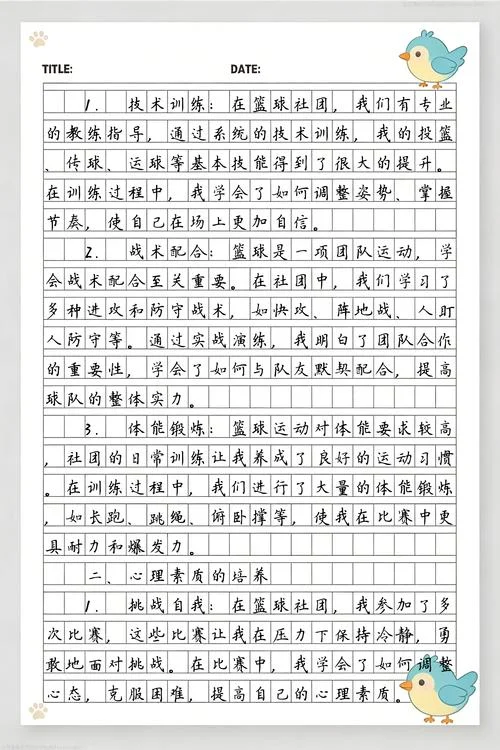 TITLE: DATE:
1. 技术训练：在篮球社团，我们有专业
的教练指导，通过系统的技术训练，我的投篮
、传球、运球等基本技能得到了很大的提升。
在训练过程中，我学会了如何调整姿势、掌握
节奏，使自己在场上更加自信。
2. 战术配合：篮球是一项团队运动，学
会战术配合至关重要。在社团中，我们学习了
多种进攻和防守战术，如快攻、阵地战、人盯
人防守等。通过实战演练，我明白了团队合作
的重要性，学会了如何与队友默契配合，提高
球队的整体实力。
3. 体能锻炼：篮球运动对体能要求较高
，社团的日常训练让我养成了良好的运动习惯
。在训练过程中，我们进行了大量的体能锻炼
，如长跑、跳绳、俯卧撑等，使我在比赛中更
具耐力和爆发力。
二、心理素质的培养
1. 挑战自我：在篮球社团，我参加了多
次比赛，这些比赛让我在压力下保持冷静，勇
敢地面对挑战。在比赛中，我学会了如何调整
心态，克服困难，提高自己的心理素质。